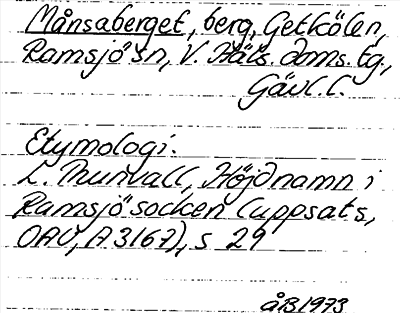 Månsaberget, berg, Getkölen,
Ramsjö sn, V. Häls. doms. tg.,
Gävl. l.
Etymologi.
L. Thunvall, Höjdnamn i
Ramsjö socken (uppsats,
OAU, A 3167), s 29
åB 1973